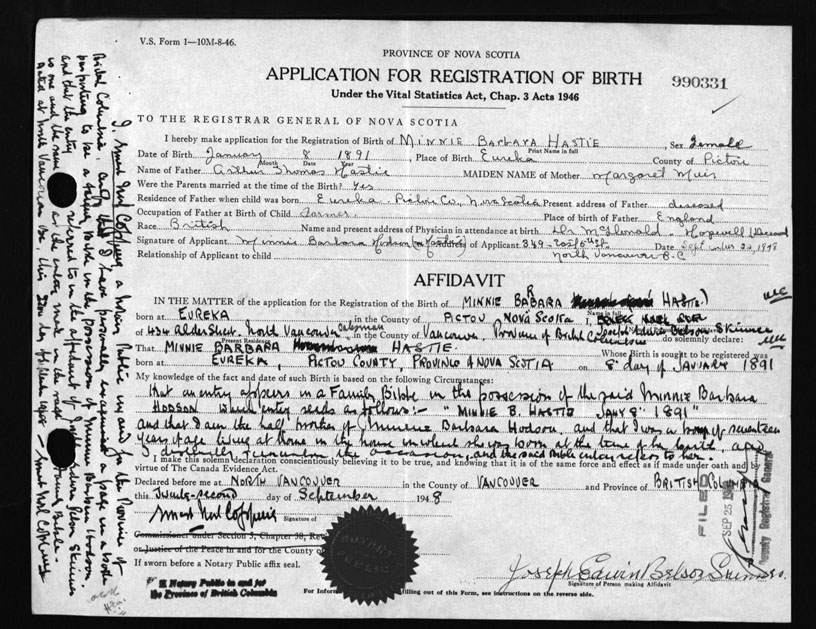 V.S. Form 1—10M-8-46.
PROVINCE OF NOVA SCOTIA
APPLICATION FOR REGISTRATION OF BIRTH
990331
Under the Vital Statistics Act, Chap. 3 Acts 1946
TO THE REGISTRAR GENERAL OF NOVA SCOTIA
I hereby make application for the Registration of Birth of Minnie Barbara Hastie, Sex female
Print Name in full
Date of Birth January 8 1891, Place of Birth Eureka County of Pictou
Month Date Year
Name of Father Arthur Thomas Hastie MAIDEN NAME of Mother Margaret Muir
Were the Parents married at the time of the Birth? Yes
Residence of Father when child was born Eureka Pictou Co, Nova Scotia Present address of Father deceased
Occupation of Father at Birth of Child Farmer Place of birth of Father England
Race British Name and present address of Physician in attendance at birth Dr McDonald - Hopewell
Signature of Applicant Minnie Barbara Hodson Address of Applicant 349 - Date September 22, 1948
Relationship of Applicant to child North Vancouver B.C
AFFIDAVIT
IN THE MATTER of the application for the Registration of the Birth of MINNIE BARBARA HASTIE
born at EUREKA in the County of PICTOU NOVA SCOTIA I, Joseph Edwin Belson Skinner
of 434 Alder Street, North Vancouver in the County of Vancouver, Province of British Columbia do solemnly declare:
Present Residence
That MINNIE BARBARA HASTIE. Whose Birth is sought to be registered was
born at EUREKA, PICTOU COUNTY, PROVINCE of NOVA SCOTIA on 8th day of JANUARY 1891
My knowledge of the fact and date of such Birth is based on the following Circumstances:
That an entry appears in a Family Bible in the possession of the said Minnie Barbara
HODSON which entry reads as follows:- "MINNIE B. HASTIE JANY 8th 1891"
and that I am the half brother of Minnie Barbara Hodson, and that I was a boy of seventeen
years of age living at home in the house in which she was born at the time of her birth, and
I distinctly remember the occasion, and the said Bible entry refers to her.
I make this solemn declaration conscientiously believing it to be true, and knowing that it is of the same force and effect as if made under oath and by
virtue of The Canada Evidence Act.
Declared before me at NORTH VANCOUVER in the County of VANCOUVER and Province of BRITISH COLUMBIA
this Twenty-second day of September 1948
Signature of
Commissioner under Section 3, Chapter 38, Rev
or Justice of the Peace in and for the County of
If sworn before a Notary Public affix seal.
NOTARY PUBLIC
FILED
SEP 25
Deputy Registrar General
A Notary Public in and for
the Province of British Columbia
Joseph Edwin Belson Skinner
Signature of Person making Affidavit
For Inform filling out of this Form, see instructions on the reverse side.
I, a Notary Public in and for the Province of
British Columbia and I have personally examined a page in a book
purporting to be a family Bible in the possession of Minnie Barbara Hodson
and that the entry referred to in the affidavit of Joseph Edwin Belson Skinner
is one and the same as the entry made in the said Family Bible.
Dated at North Vancouver